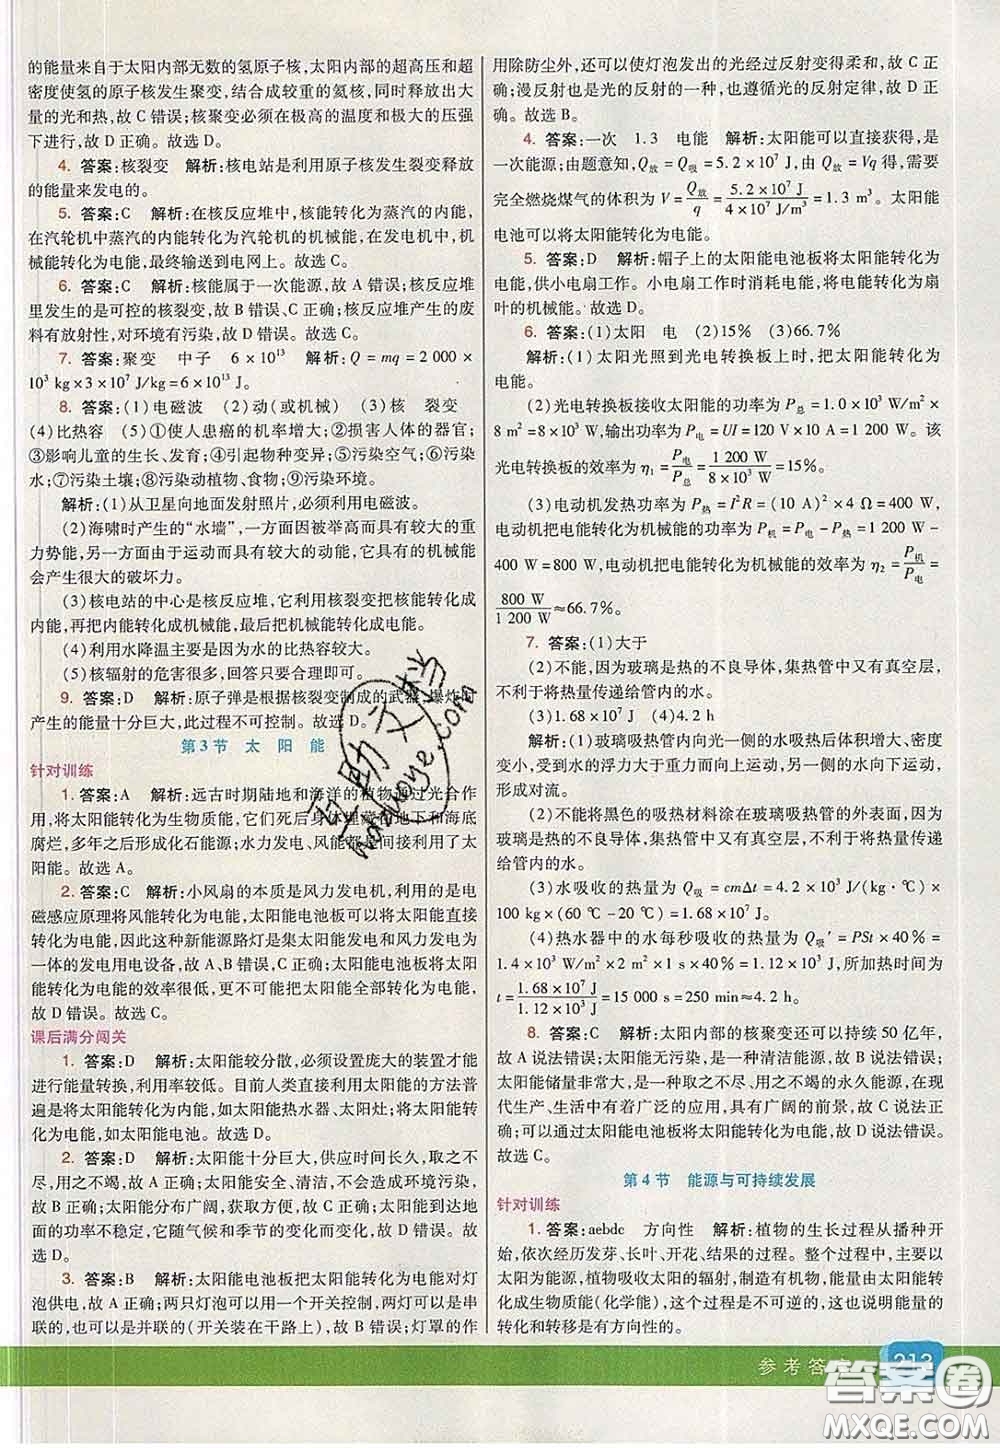 的能量来自于太阳内部无数的氢原子核,太阳内部的超高压和超高
密度使氢的原子核发生聚变,结合成较重的氦核,同时释放出大量
的光和热,故C错误;核聚变必须在极高的温度和极大的压强
下进行,故D正确。故选D。
4. 答案:核裂变 解析:核电站是利用原子核发生裂变释放
的能量来发电的。
5. 答案:C 解析:在核反应堆中,核能转化为蒸汽的内能,
在汽轮机中蒸汽的内能转化为汽轮机的机械能,在发电机中,机
械能转化为电能,最终输送到电网上。故选C。
6. 答案:C 解析:核能属于一次能源,故A错误;核反应堆
里发生的是可控的核裂变,故B错误、C正确;核反应堆产生的废
料有放射性,对环境有污染,故D错误。故选C。
7. 答案:聚变 中子 6×10¹³ 解析:Q=mq=2 000×
10³ kg×3×10⁷ J/kg=6×10¹³ J。
8. 答案:(1)电磁波 (2)动(或机械) (3)核 裂变
(4)比热容 (5)①使人患癌的机率增大;②损害人体的器官;
③影响儿童的生长、发育;④引起物种变异;⑤污染空气;⑥污染水;
⑦污染土壤;⑧污染动植物、食物;⑨污染环境。
解析:(1)从卫星向地面发射照片,必须利用电磁波。
(2)海啸时产生的“水墙”,一方面因被举高而具有较大的重
力势能,另一方面由于运动而具有较大的动能,它具有的机械能
会产生很大的破坏力。
(3)核电站的中心是核反应堆,它利用核裂变把核能转化成
内能,再把内能转化成机械能,最后把机械能转化成电能。
(4)利用水降温主要是因为水的比热容较大。
(5)核辐射的危害很多,回答只要合理即可。
9. 答案:D 解析:原子弹是根据核裂变制成的武器,爆炸时
产生的能量十分巨大,此过程不可控制。故选D。
第3节 太阳能
针对训练
1. 答案:A 解析:远古时期陆地和海洋的植物通过光合作
用,将太阳能转化为生物质能,它们死后身体埋藏在地下和海底
腐烂,多年之后形成化石能源;水力发电、风能都是间接来自于太
阳能。故选A。
2. 答案:C 解析:小风扇的本质是风力发电机,利用的是电
磁感应原理将风能转化为电能,太阳能电池板可以将太阳能直接
转化为电能,因此这种新能源路灯是集太阳能发电和风力发电于
一体的发电用电设备,故A、B错误,C正确;太阳能电池板将太阳能
转化为电能的效率很低,更不可能把太阳能全部转化为电能,故
D错误。故选C。
课后满分闯关
1. 答案:D 解析:太阳能较分散,必须设置庞大的装置才能
进行能量转换,利用率较低。目前人类直接利用太阳能的方法普
遍是将太阳能转化为内能,如太阳能热水器、太阳灶;将太阳能转
化为电能,如太阳能电池。故选D。
2. 答案:D 解析:太阳能十分巨大,供应时间长久,取之不
尽、用之不竭,故A正确;太阳能安全、清洁,不会造成环境污染,
故B正确;太阳能分布广阔,获取方便,故C正确;太阳能到达地
面的功率不稳定,它随气候和季节的变化而变化,故D错误。故
选D。
3. 答案:B 解析:太阳能电池板把太阳能转化为电能对灯
泡供电,故A正确;两只灯泡可以用一个开关控制,两灯可以是串
联的,也可以是并联的(开关装在干路上),故B错误;灯罩的作
用除防尘外,还可以使灯泡发出的光经过反射变得柔和,故C正
确;漫反射是光的反射的一种,也遵循光的反射定律,故D正
确。故选B。
4. 答案:一次 1.3 电能 解析:太阳能可以直接获得,是
一次能源;由题意知,Q放=Q吸=5.2×10⁷ J,由Q放=Vq得,需要
完全燃烧煤气的体积为V=Q放/q=5.2×10⁷ J/4×10⁷ J/m³=1.3 m³。太阳能
电池可以将太阳能转化为电能。
5. 答案:D 解析:帽子上的太阳能电池板将太阳能转化为
电能,供小电扇工作。小电扇工作时消耗电能,将电能转化为扇
叶的机械能。故选D。
6. 答案:(1)太阳 电 (2)15% (3)66.7%
解析:(1)太阳光照到光电转换板上时,把太阳能转化为
电能。
(2)光电转换板接收太阳能的功率为P总=1.0×10³ W/m²×
8 m²=8×10³ W,输出功率为P电=UI=120 V×10 A=1 200 W。该
光电转换板的效率为η₁=P电/P总=1 200 W/8×10³ W=15%。
(3)电动机发热功率为P热=I²R=(10 A)²×4 Ω=400 W,
电动机把电能转化为机械能的功率为P机=P电-P热=1 200 W-
400 W=800 W,电动机把电能转化为机械能的效率为η₂=P机/P电=
800 W/1 200 W≈66.7%。
7. 答案:(1)大于
(2)不能,因为玻璃是热的不良导体,集热管中又有真空层,
不利于将热量传递给管内的水。
(3)1.68×10⁷ J (4)4.2 h
解析:(1)玻璃吸热管内向光一侧的水吸热后体积增大、密度
变小,受到水的浮力大于重力而向上运动,另一侧的水向下运动,
形成对流。
(2)不能将黑色的吸热材料涂在玻璃吸热管的外表面,因为
玻璃是热的不良导体,集热管中又有真空层,不利于将热量传递
给管内的水。
(3)水吸收的热量为Q吸=cmΔt=4.2×10³ J/(kg·℃)×
100 kg×(60 ℃-20 ℃)=1.68×10⁷ J。
(4)热水器中的水每秒吸收的热量为Q吸′=PSt×40%=
1.4×10³ W/m²×2 m²×1 s×40%=1.12×10³ J,所加热时间为
t=1.68×10⁷ J/1.12×10³ J=15 000 s≈4.2 h。
8. 答案:C 解析:太阳内部的核聚变还可以持续50亿年,
故A说法错误;太阳能无污染,是一种清洁能源,故B说法错误;
太阳能储量非常大,是一种取之不尽、用之不竭的永久能源,在
现代生产、生活中有着广泛的应用,具有广阔的前景,故C说法正
确;可以通过太阳能电池板将太阳能转化为电能,故D说法错误。
故选C。
第4节 能源与可持续发展
针对训练
1. 答案:aebdc 方向性 解析:植物的生长过程从播种开
始,依次经历发芽、长叶、开花、结果的过程。整个过程中,主要以
太阳为能源,植物吸收太阳的辐射,制造有机物,能量由太阳能转
化成生物质能(化学能),这个过程是不可逆的,这也说明能量的
转化和转移是有方向性的。
参考答案 213
答案圈
MXQE.COM